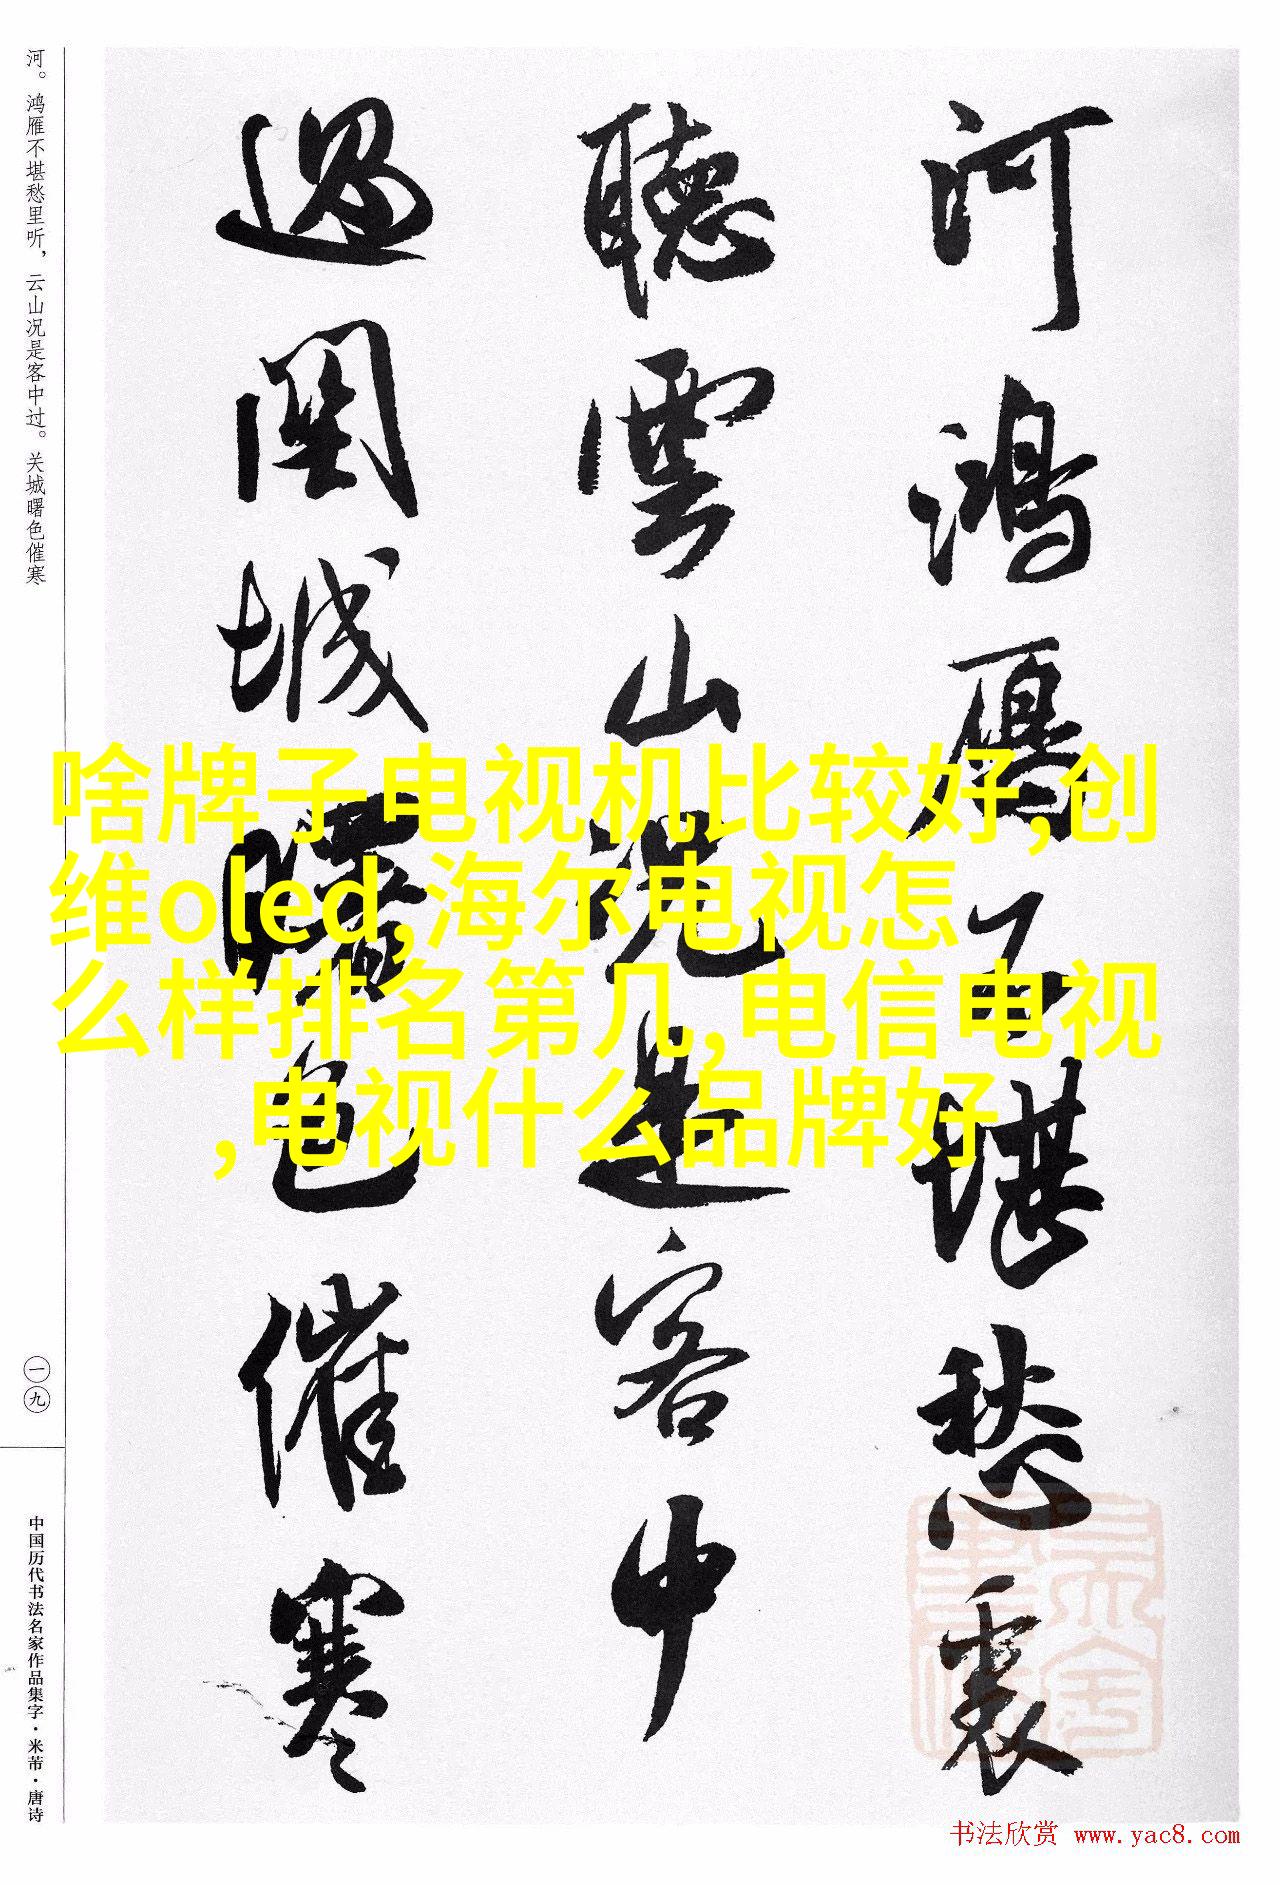 河鸿雁不堪愁裏
聽雲山況是客中
過関城曙色催寒
河。鸿雁不堪愁里听，云山况是客中过。关城曙色催寒
一九
中国历代书法名家作品集字·米芾·唐诗
啥牌子电视机比较好,创
维oled,海尔电视怎
么样排名第几,电信电视
,电视什么品牌好
书法欣赏 www.yac8.com